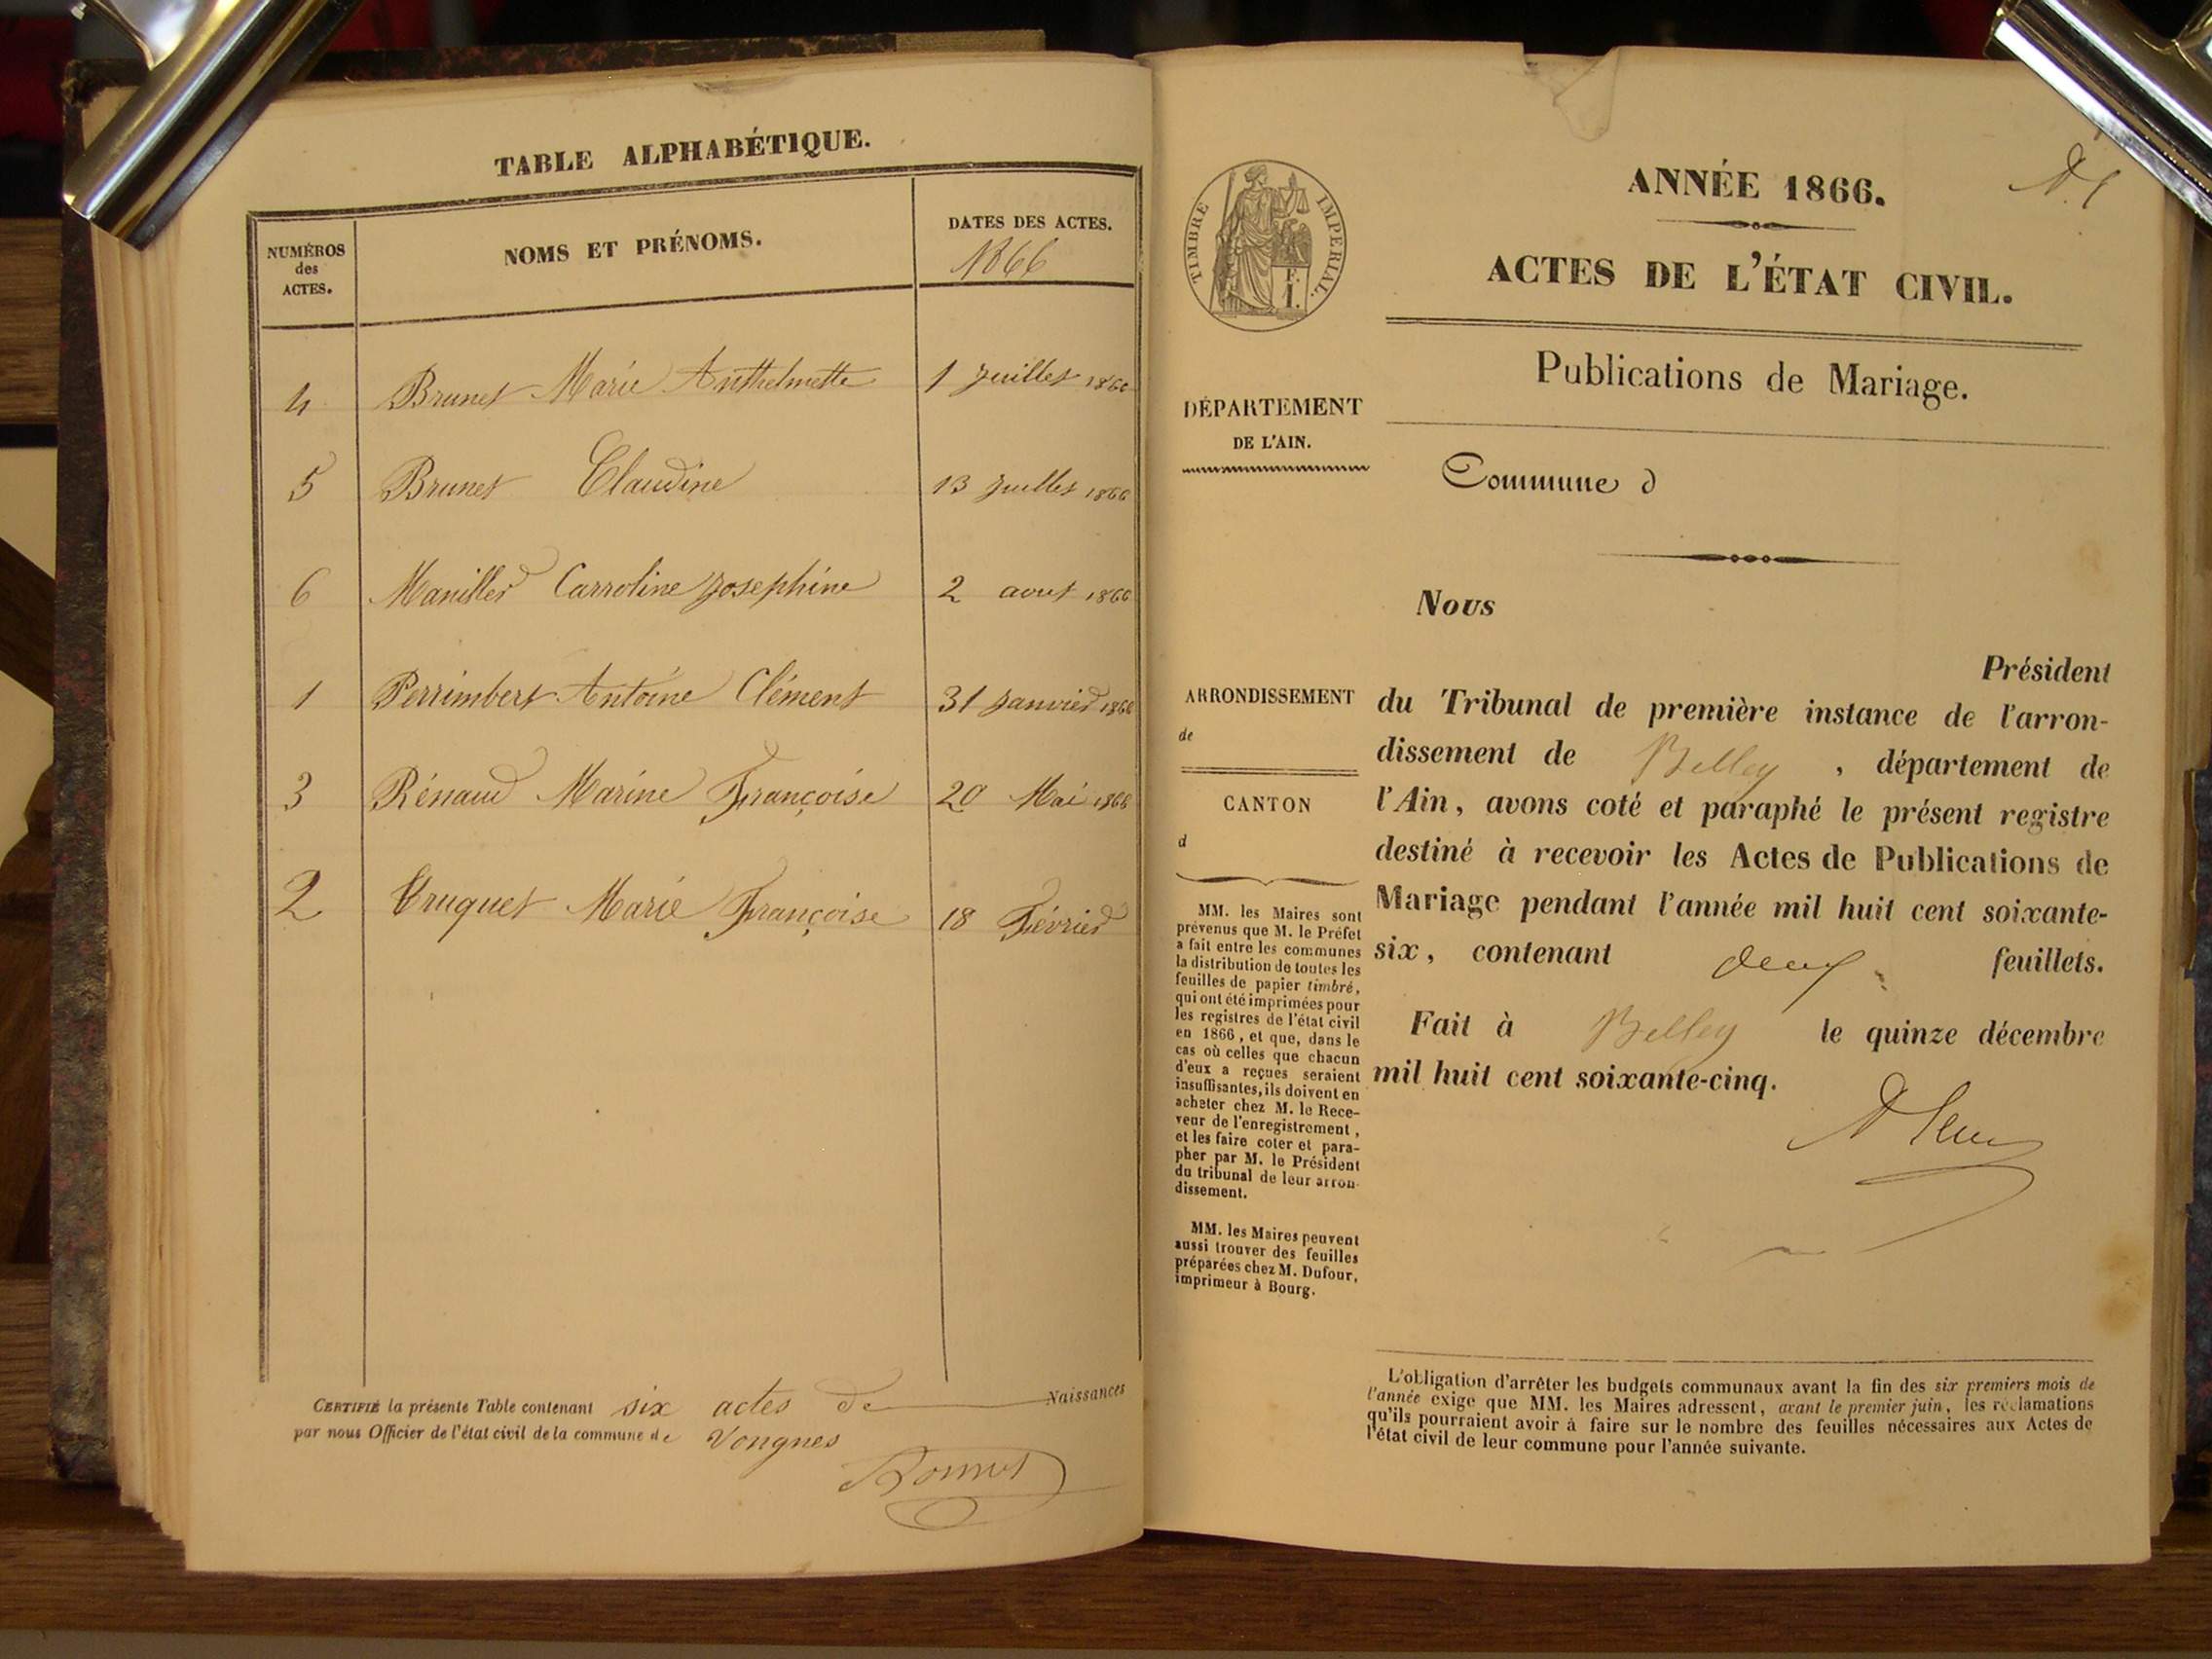 TABLE ALPHABÉTIQUE.
NUMÉROS des ACTES.
NOMS ET PRÉNOMS.
DATES DES ACTES.
1866
4 Brunet Marie Anthelmette 1 Juillet 1866
5 Brunet Claudine 13 Juillet 1866
6 Manillier Carroline Josephine 2 aout 1866
1 Perrimbert Antoine Clément 31 Janvier 1866
3 Rénaud Marine Françoise 20 Mai 1866
2 Truquet Marie Françoise 18 Février
CERTIFIÉ la présente Table contenant six actes de Naissances
par nous Officier de l'état civil de la commune de Vongnes
TIMBRE IMPERIAL.
ANNÉE 1866.
ACTES DE L'ÉTAT CIVIL.
Publications de Mariage.
DÉPARTEMENT
DE L'AIN.
Commune d
Nous
Président
ARRONDISSEMENT
de
CANTON
d
du Tribunal de première instance de l'arron-
dissement de Belley, département de
l'Ain, avons coté et paraphé le présent registre
destiné à recevoir les Actes de Publications de
Mariage pendant l'année mil huit cent soixante-
six, contenant deux feuillets.
Fait à Belley le quinze décembre
mil huit cent soixante-cinq.
MM. les Maires sont
prévenus que M. le Préfet
a fait entre les communes
la distribution de toutes les
feuilles de papier timbré,
qui ont été imprimées pour
les registres de l'état civil
en 1866, et que, dans le
cas où celles que chacun
d'eux a reçues seraient
insuffisantes, ils doivent en
acheter chez M. le Rece-
veur de l'enregistrement,
et les faire coter et para-
pher par M. le Président
du tribunal de leur arron-
dissement.
MM. les Maires peuvent
aussi trouver des feuilles
préparées chez M. Dufour,
imprimeur à Bourg.
L'obligation d'arrêter les budgets communaux avant la fin des six premiers mois de
l'année exige que MM. les Maires adressent, avant le premier juin, les réclamations
qu'ils pourraient avoir à faire sur le nombre des feuilles nécessaires aux Actes de
l'état civil de leur commune pour l'année suivante.